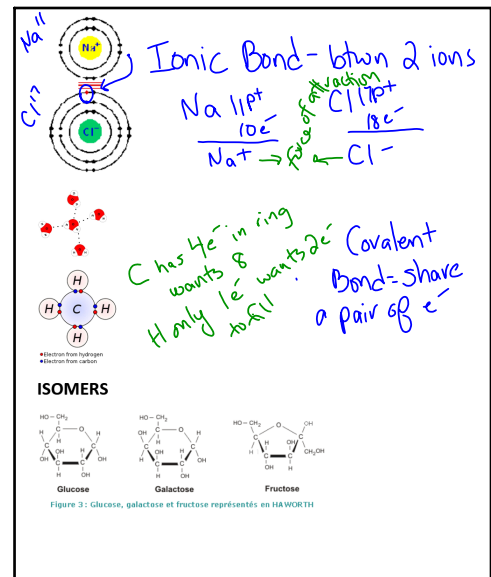 Na 11
Na+
Cl 17
Cl-
Ionic Bond - btwn 2 ions
Na 11p+
10e-
Na+
force of attraction
Cl 17p+
18e-
Cl-
C has 4e- in ring
wants 8
H only 1e- wants 2e-
to fill
Covalent
Bond = share
a pair of e-
H
H C H
H
Electron from hydrogen
Electron from carbon
ISOMERS
HO-CH2
C O
H H
C H C
OH OH H OH
C C
H OH
Glucose
HO-CH2
C O
OH H
C H C
H OH H OH
C C
H OH
Galactose
HO-CH2 O OH
C C
H H OH CH2OH
C C
OH H
Fructose
Figure 3 : Glucose, galactose et fructose représentés en HAWORTH